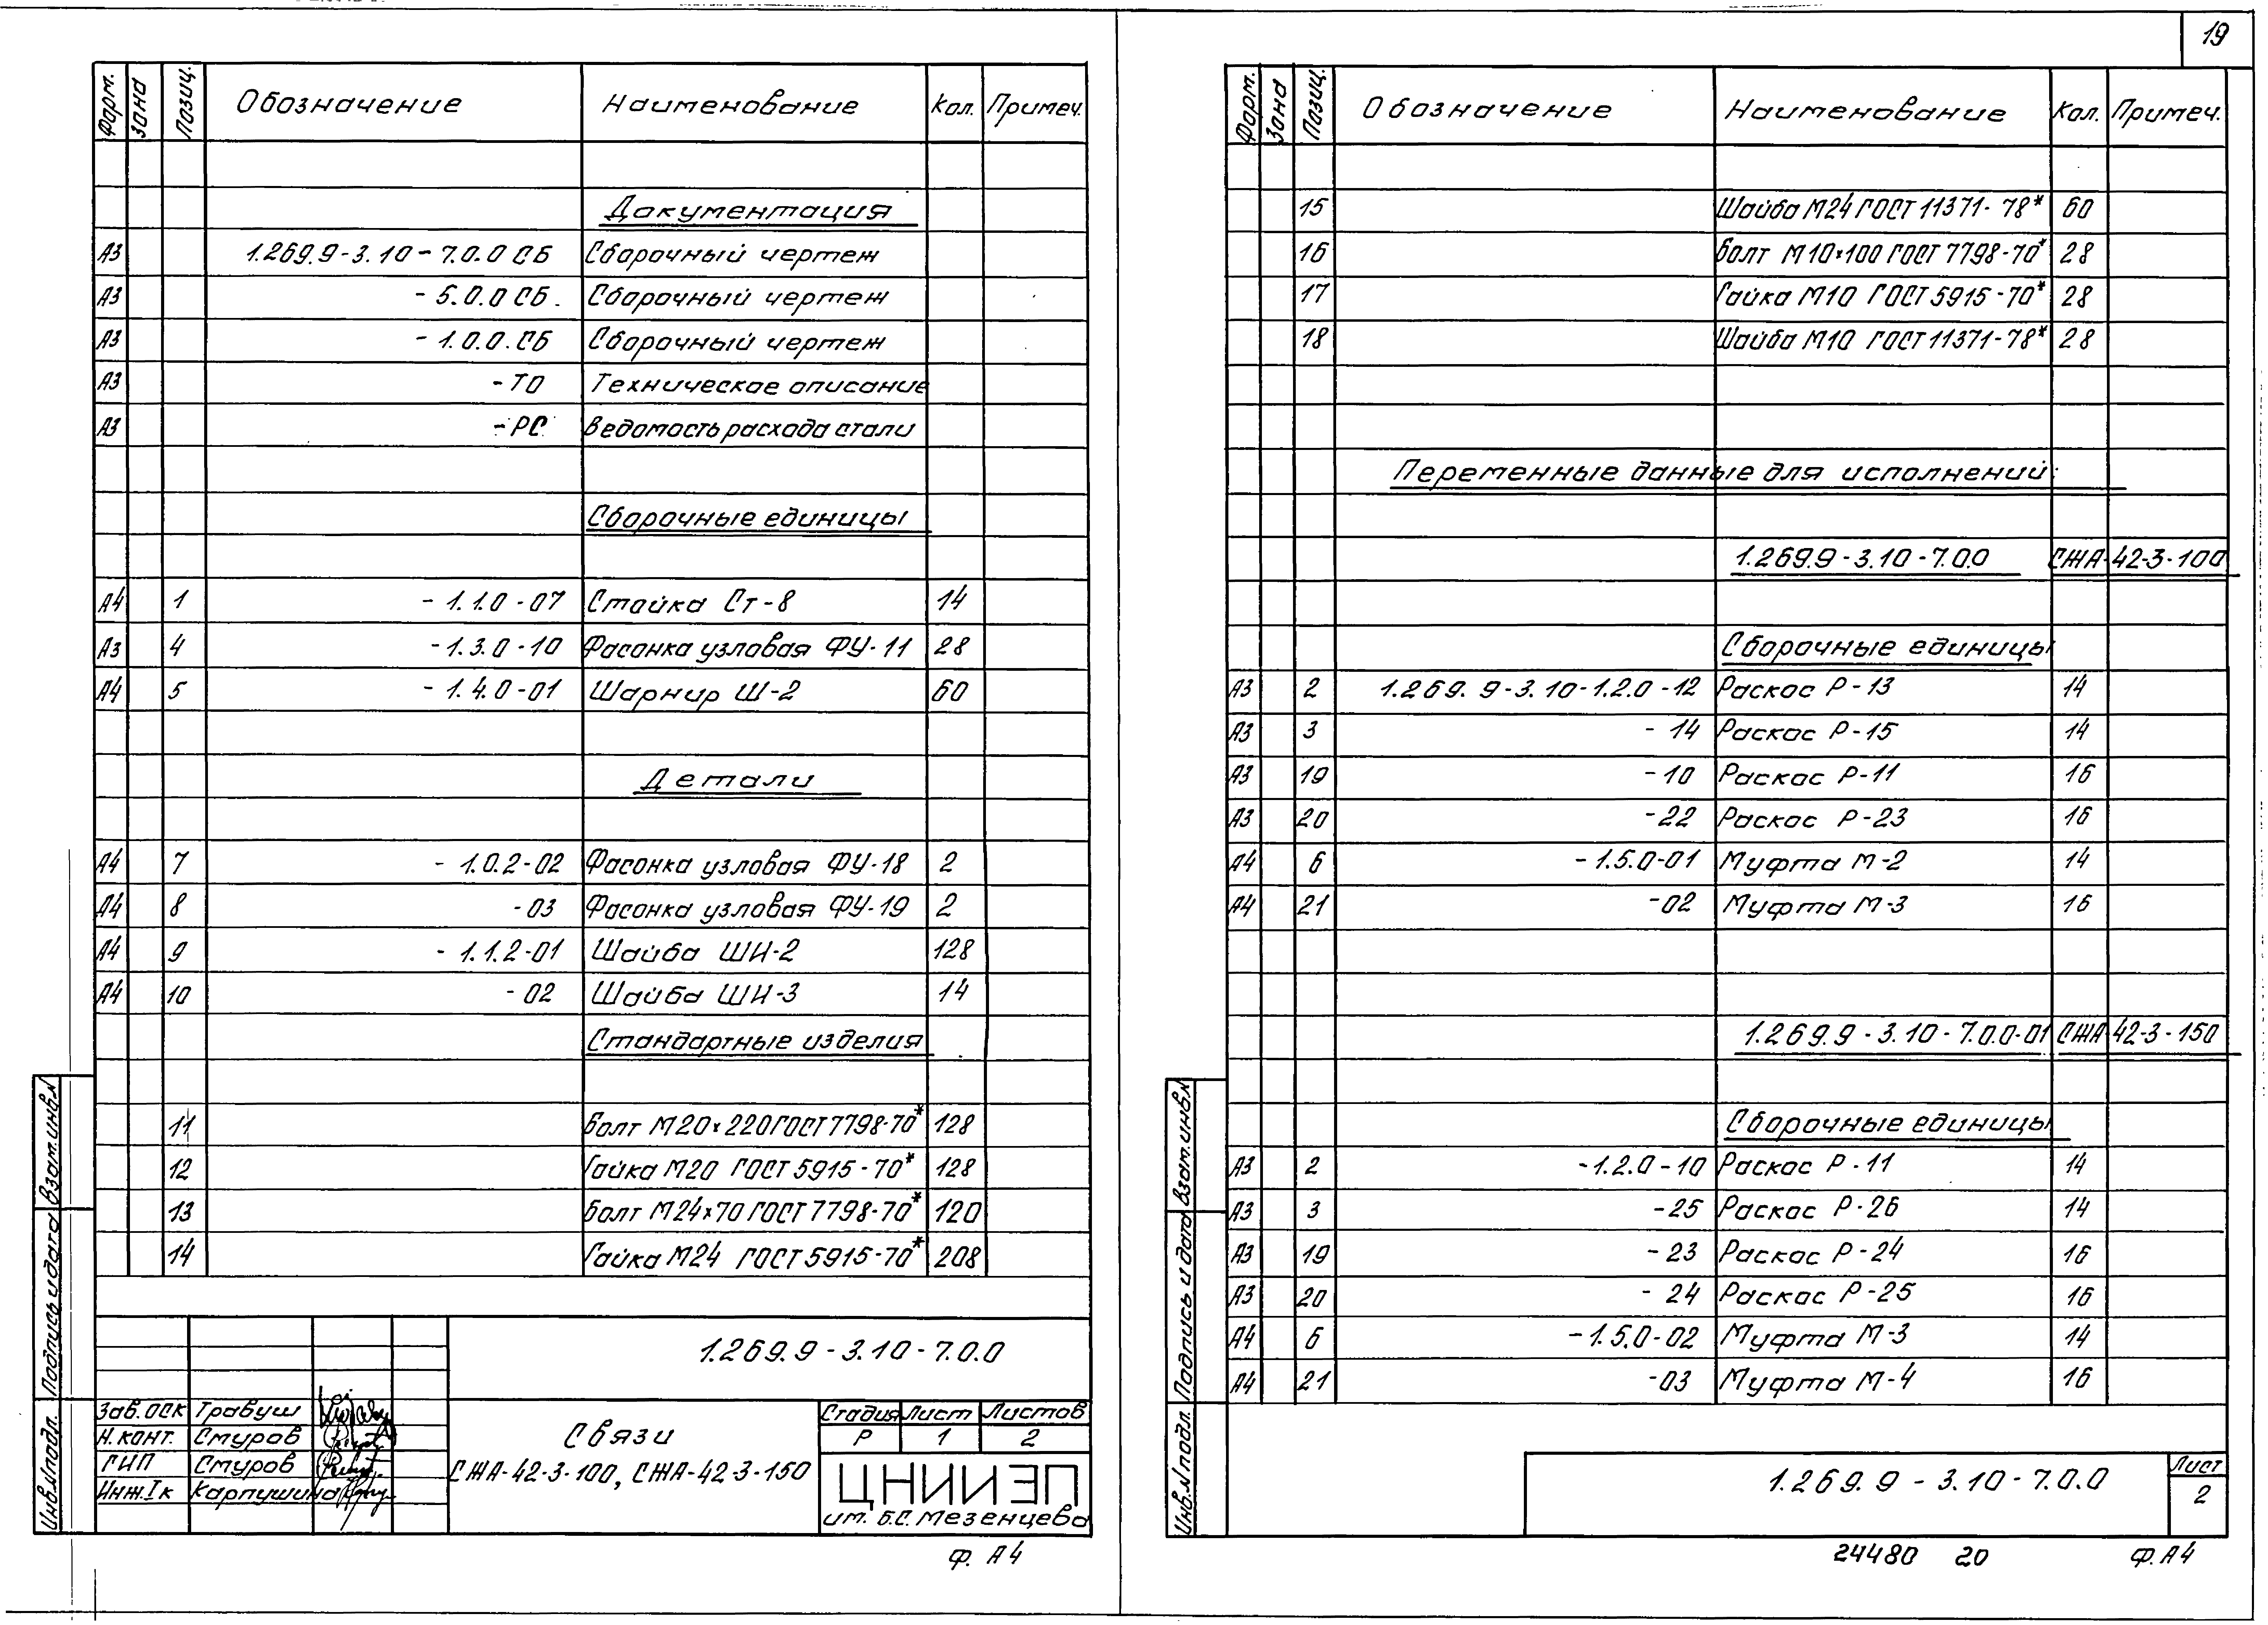 19
Форм. Зона Позиц. Обозначение Наименование Кол. Примеч.
Документация
А3 1.269.9-3.10-7.0.0 СБ Сборочный чертеж
А3 -5.0.0 СБ. Сборочный чертеж
А3 -1.0.0.СБ Сборочный чертеж
А3 -ТО Техническое описание
А3 -РС Ведомость расхода стали
Сборочные единицы
А4 1 -1.1.0-07 Стойка Ст-8 14
А3 4 -1.3.0-10 Фасонка узловая ФУ-11 28
А4 5 -1.4.0-01 Шарнир Ш-2 60
Детали
А4 7 -1.0.2-02 Фасонка узловая ФУ-18 2
А4 8 -03 Фасонка узловая ФУ-19 2
А4 9 -1.1.2-01 Шайба ШИ-2 128
А4 10 -02 Шайба ШИ-3 14
Стандартные изделия
11 Болт М20×220 ГОСТ 7798-70* 128
12 Гайка М20 ГОСТ 5915-70* 128
13 Болт М24×70 ГОСТ 7798-70* 120
14 Гайка М24 ГОСТ 5915-70* 208
1.269.9-3.10-7.0.0
Зав. ОСК Травуш
Н. конт. Стуров
ГИП Стуров
Инж. I к Карпушина
Связи
СЖА-42-3-100, СЖА-42-3-150
Стадия Лист Листов
Р 1 2
ЦНИИЭП
им. Б.С. Мезенцева
Инв.N подл. Подпись и дата Взам.инв.N
Ф. А4
Форм. Зона Позиц. Обозначение Наименование Кол. Примеч.
15 Шайба М24 ГОСТ 11371-78* 60
16 Болт М10×100 ГОСТ 7798-70* 28
17 Гайка М10 ГОСТ 5915-70* 28
18 Шайба М10 ГОСТ 11371-78* 28
Переменные данные для исполнений:
1.269.9-3.10-7.0.0 СЖА-42-3-100
Сборочные единицы
А3 2 1.269.9-3.10-1.2.0-12 Раскос Р-13 14
А3 3 -14 Раскос Р-15 14
А3 19 -10 Раскос Р-11 16
А3 20 -22 Раскос Р-23 16
А4 6 -1.5.0-01 Муфта М-2 14
А4 21 -02 Муфта М-3 16
1.269.9-3.10-7.0.0-01 СЖА-42-3-150
Сборочные единицы
А3 2 -1.2.0-10 Раскос Р-11 14
А3 3 -25 Раскос Р-26 14
А3 19 -23 Раскос Р-24 16
А3 20 -24 Раскос Р-25 16
А4 6 -1.5.0-02 Муфта М-3 14
А4 21 -03 Муфта М-4 16
1.269.9-3.10-7.0.0
Лист
2
Инв.N подл. Подпись и дата Взам.инв.N
24480 20 Ф. А4